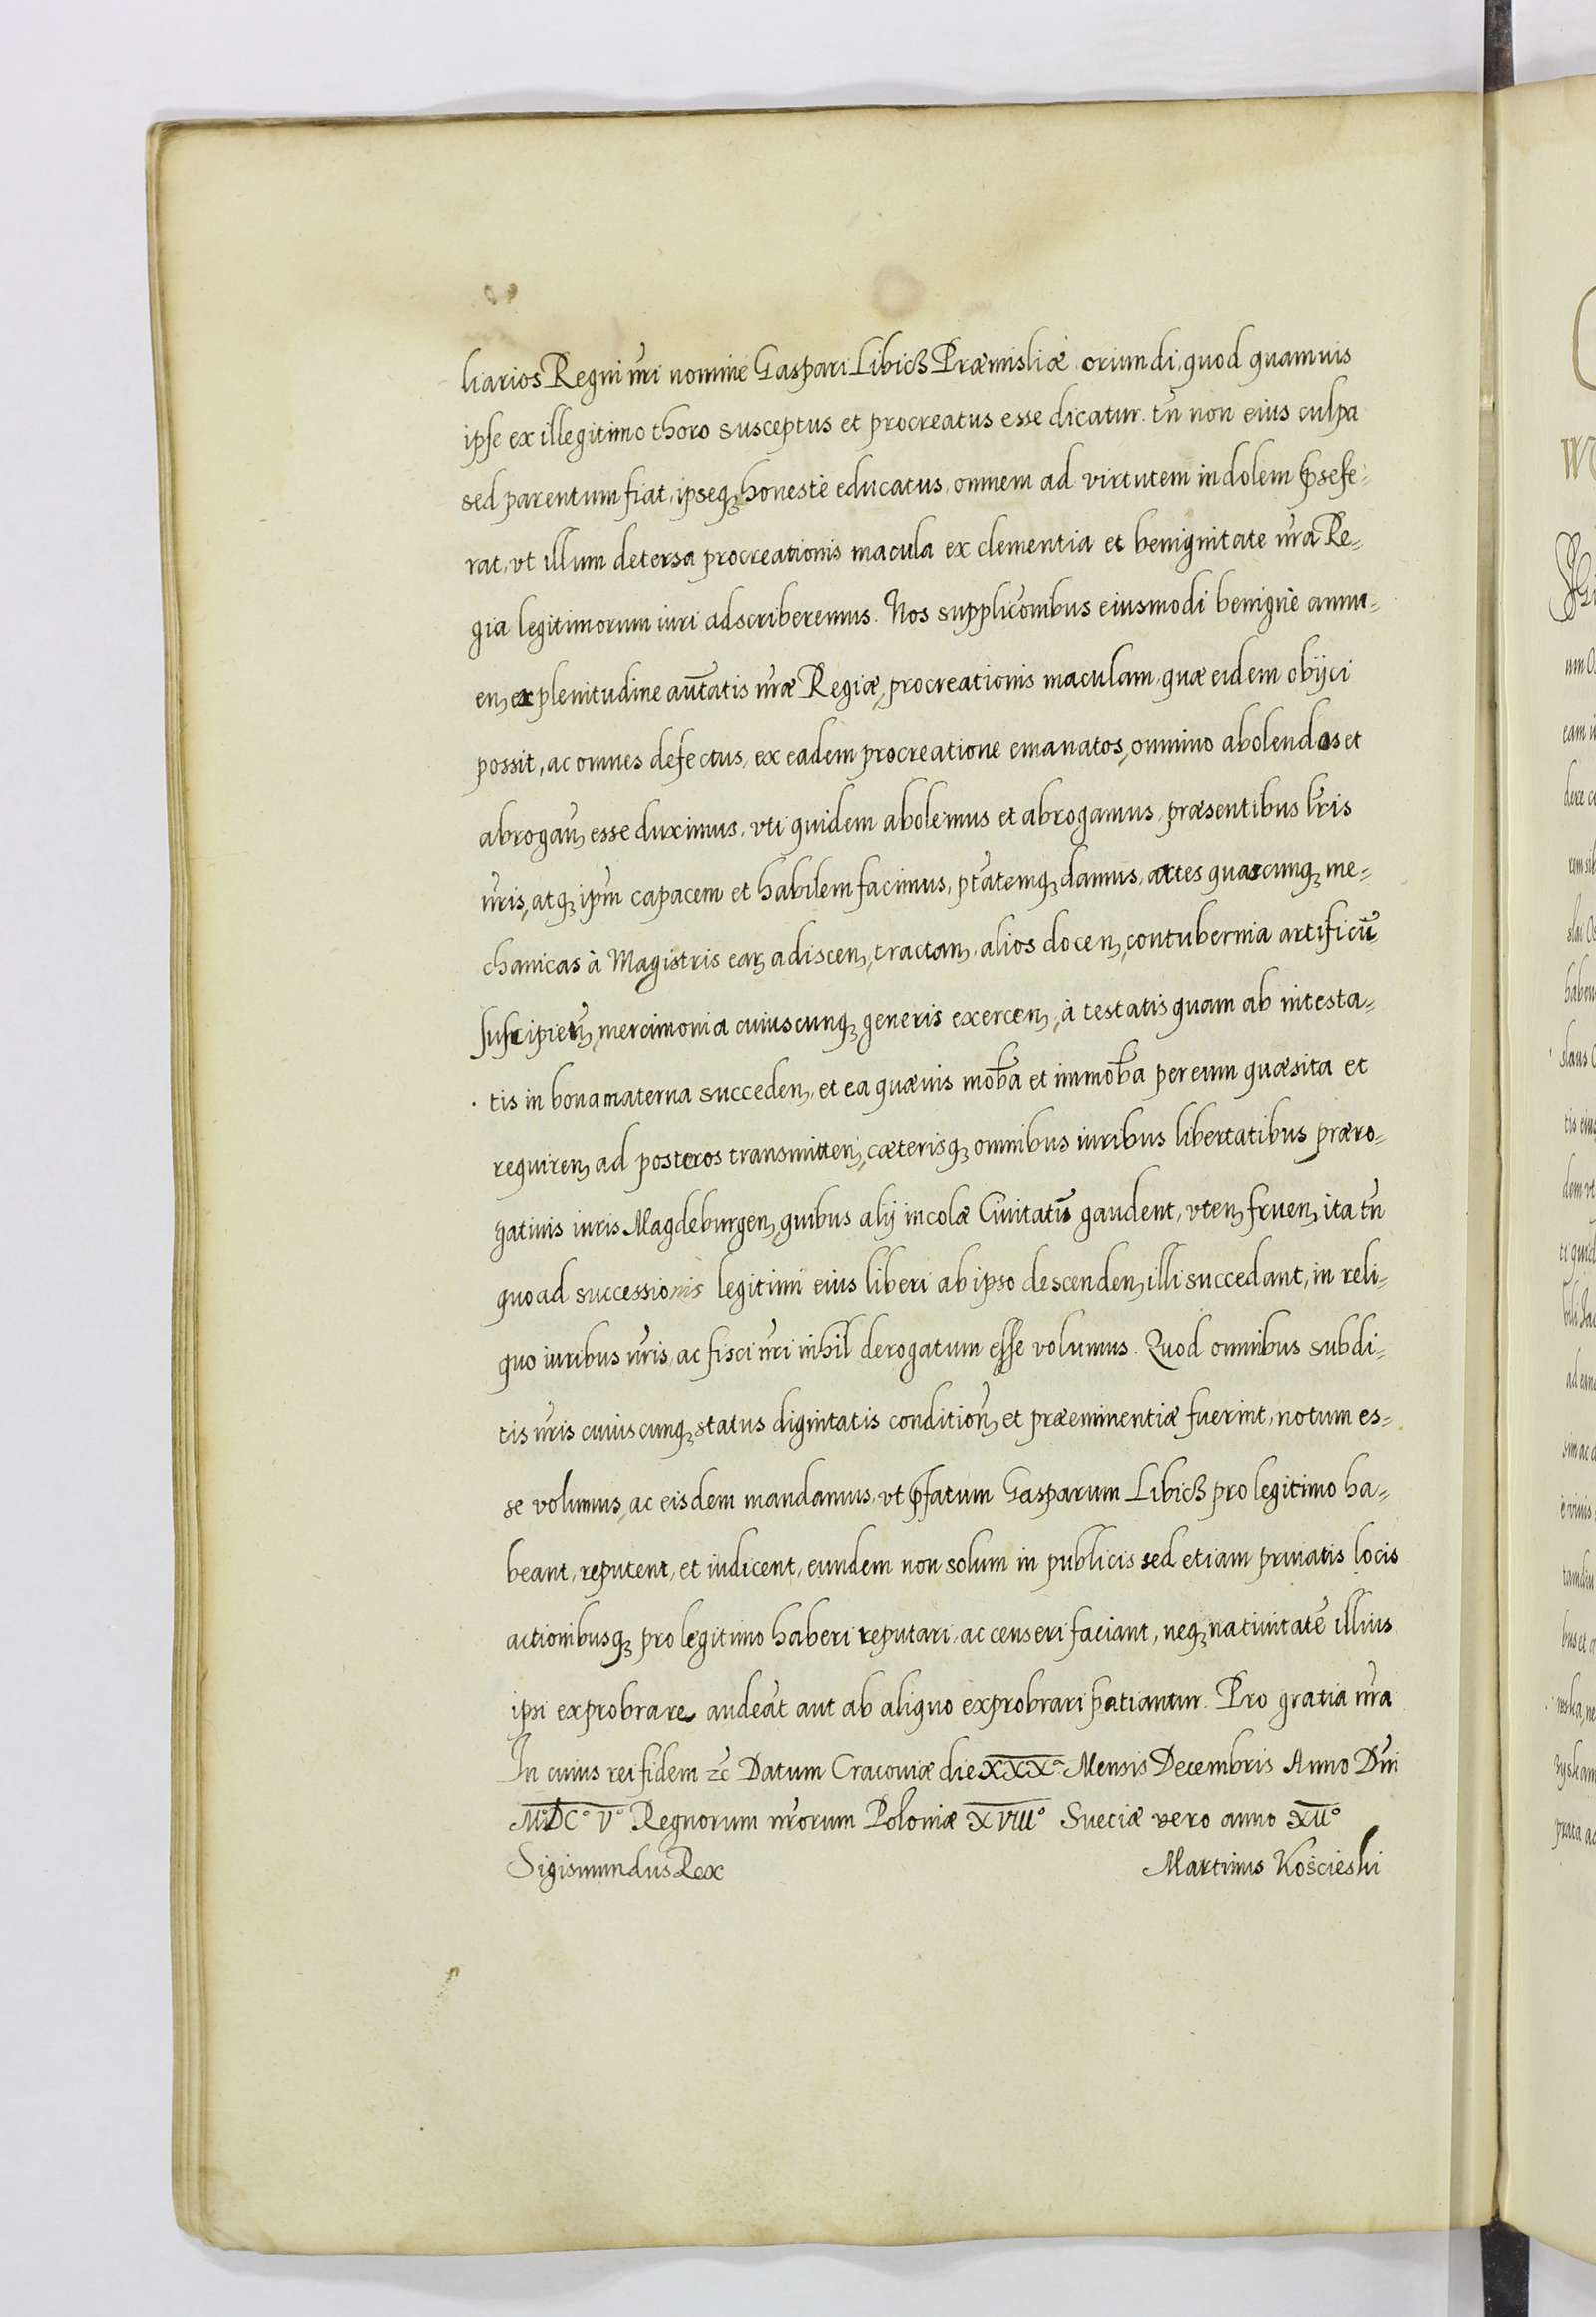 liarios Regni nr̃i nomine Gaspari Libicß Præmisliæ oriundi, quod quamuis
ipse ex illegitimo thoro susceptus et procreatus esse dicatur. tñ non eius culpa
sed parentum fiat, ipseq₃ honestè educatus, omnem ad virtutem indolem p̃sefe-
rat, vt illum detersa procreationis macula ex clementia et benignitate nr̃a Re-
gia legitimorum iuri adscriberemus. Nos supplicõnibus eiusmodi benignè annu-
en, ex plenitudine aut̃atis nr̃æ Regiæ, procreationis maculam, quæ eidem obijci
possit, ac omnes defectus, ex eadem procreatione emanatos, omnino abolendos et
abrogañ, esse duximus, vti quidem abolemus et abrogamus, præsentibus lr̃is
nr̃is, atq₃ ipm̃ capacem et habilem facimus, pt̃atemq₃ damus, artes quascunq₃ me-
chanicas à Magistris ear, adiscen, tractan, alios docen, contubernia artificũ
suscipien̄, mercimonia cuiuscunq₃ generis exercen, à testatis quam ab intesta-
tis in bona materna succeden, et ea quæuis mob̃a et immob̃a per eum quæsita et
requiren, ad posteros transmitten, cæterisq₃ omnibus iuribus libertatibus præro-
gatiuis iuris Magdeburgen, quibus alij incolæ Ciuitatũ gaudent, vten, fruen, ita tñ
quoad successionis legitimi eius liberi ab ipso descenden, illi succedant, in reli-
quo iuribus nr̃is, ac fisci nr̃i inhil derogatum esse volumus. Quod omnibus subdi-
tis nr̃is cuiuscunq₃ status dignitatis condition, et præeminentiæ fuerint, notum es-
se volumus, ac eisdem mandamus, vt p̃fatum Gasparum Libicß pro legitimo ha-
beant, reputent, et iudicent, eundem non solum in publicis sed etiam priuatis locis
actionibusq₃ pro legitimo haberi reputari, ac censeri faciant, neq₃ natiuitatẽ illius
ipsi exprobrare audeãt aut ab aliquo exprobrari patiantur. Pro gratia nr̃a
In cuius rei fidem zc̃ Datum Cracouiæ die XXXᵃ Mensis Decembris Anno Dñi
MDCº Vº Regnorum nr̃orum Poloniæ XVIIIº Sueciæ vero anno XIIº
Sigismundus Rex Martinus Kościeski